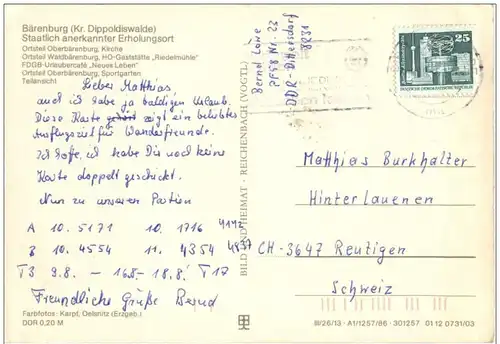 Bärenburg (Kr. Dippoldiswalde)
Staatlich anerkannter Erholungsort
Ortsteil Oberbärenburg, Kirche
Ortsteil Waldbärenburg, HO-Gaststätte „Riedelmühle“
FDGB-Urlaubercafé „Neues Leben“
Ortsteil Oberbärenburg, Sportgarten
Teilansicht
Lieber Matthias,
auch ich habe ja baldigen Urlaub.
Diese Karte gehört zeigt ein beliebtes
Ausflugsziel für Wanderfreunde.
Ich hoffe, ich habe Dir noch keine
Karte doppelt geschickt.
Nun zu unseren Partien
A 10. 5171 10. 1716 4142
B 10. 4554 11. 4354 4837
T3 9.8. – 16.8. – 18.8. T17
Freundliche Grüße Bernd
Farbfotos: Karpf, Oelsnitz (Erzgeb.)
DDR 0,20 M
BILD UND HEIMAT · REICHENBACH (VOGTL)
Bernd Löwe
PF 58 Nr. 22
DDR-Dittersdorf
9231
25
DEUTSCHE DEMOKRATISCHE REPUBLIK
Matthias Burkhalter
Hinterlauenen
CH-3647 Reutigen
Schweiz
III/26/13 · A1/1257/86 · 301257 01 12 0731/03